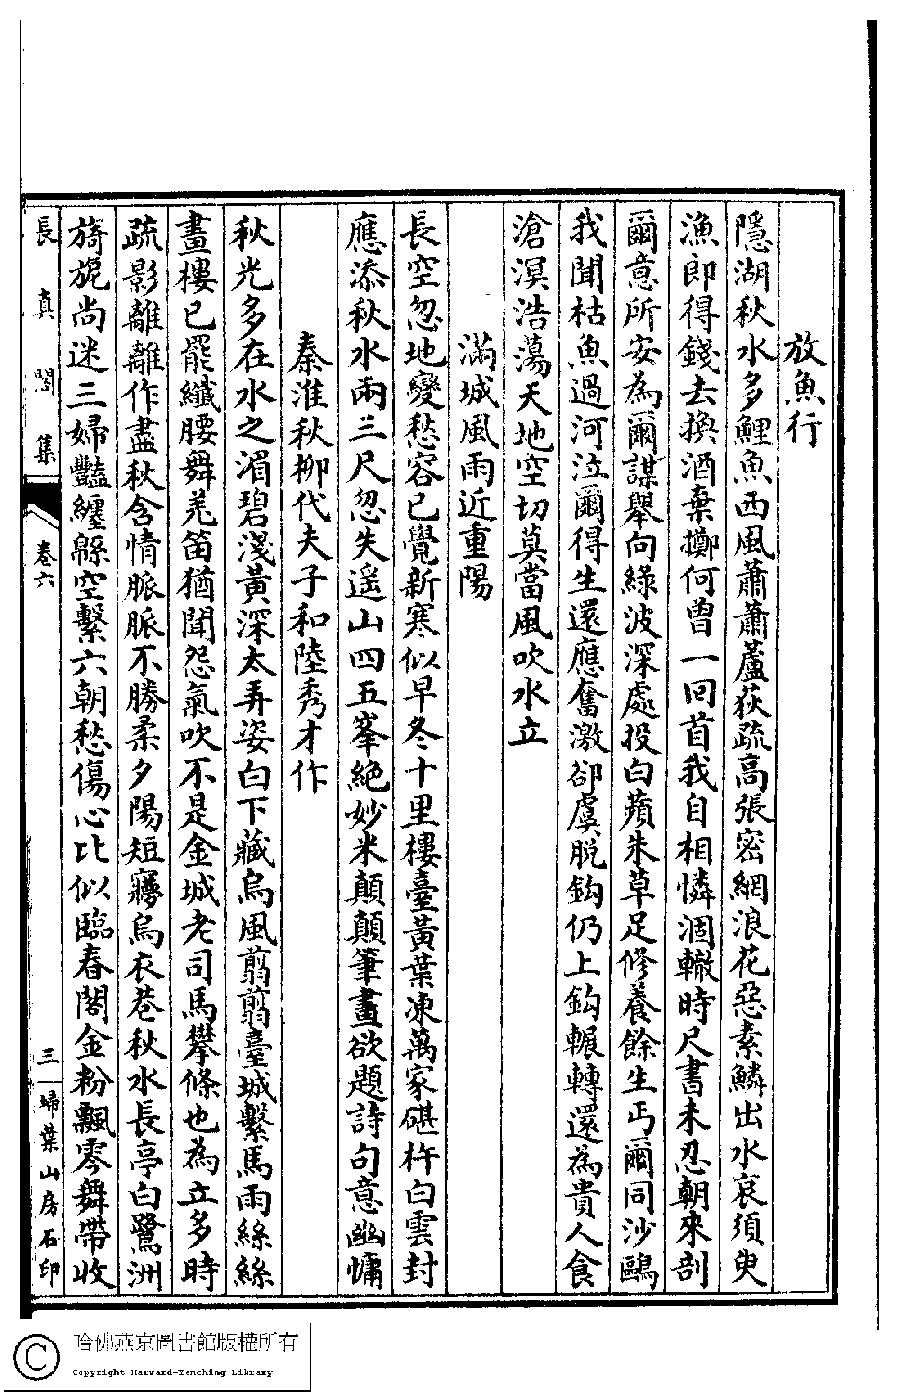 放魚行
隱湖秋水多鯉魚西風蕭蕭蘆荻疏高張密網浪花惡素鱗出水哀須臾
漁郎得錢去換酒棄擲何曾一回首我自相憐涸轍時尺書未忍朝來剖
爾意所安為爾謀舉向綠波深處投白蘋朱草足修養餘生丐爾同沙鷗
我聞枯魚過河泣爾得生還應奮激卻虞脫鈎仍上鈎輾轉還為貴人食
滄溟浩蕩天地空切莫當風吹水立
滿城風雨近重陽
長空忽地變愁容已覺新寒似早冬十里樓臺黃葉凍萬家碪杵白雲封
應添秋水兩三尺忽失遥山四五峯絕妙米顛顛筆畫欲題詩句意幽慵
秦淮秋柳代夫子和陸秀才作
秋光多在水之湄碧淺黃深太弄姿白下藏烏風翦翦臺城繫馬雨絲絲
畫樓已罷纖腰舞羌笛猶聞怨氣吹不是金城老司馬攀條也為立多時
疏影離離作盡秋含情脈脈不勝柔夕陽短寢烏衣巷秋水長亭白鷺洲
旖旎尚迷三婦豔纏緜空繫六朝愁傷心比似臨春閣金粉飄零舞帶收
長真閣集
卷六
三
埽葉山房石印
哈佛燕京圖書館版權所有
Copyright Harvard-Yenching Library